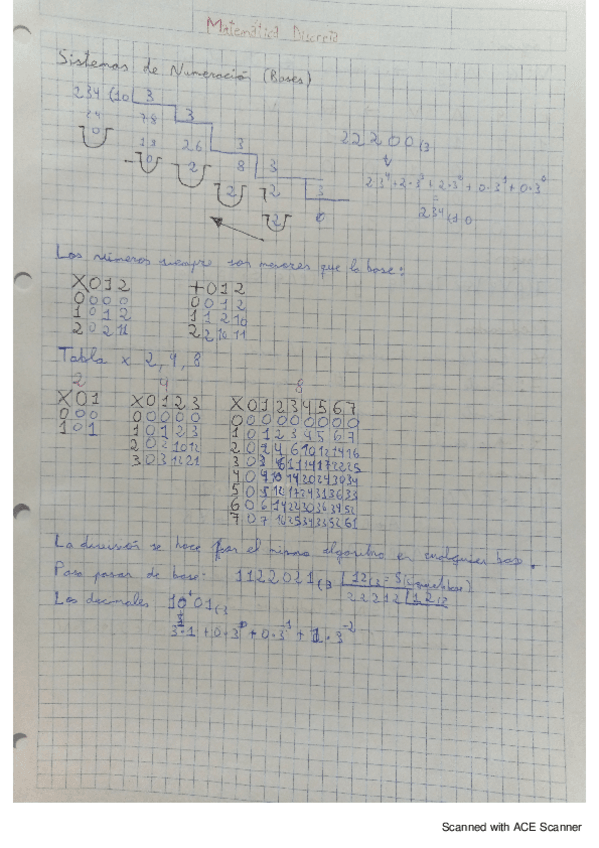 Matemática Discreta
Sistemas de Numeración (Bases)
234 (10 3
24 78 3
0 18 26 3
0 2 8 3
2 2 3
2 0
22200(3
2·3⁴+2·3³+2·3²+0·3¹+0·3⁰
234(10
Los números siempre son menores que la base:
X012 +012
0000 0012
1012 11210
20211 221011
Tabla x 2, 4, 8
2 4 8
X01 X0123 X01234567
000 00000 000000000
101 10123 101234567
2021012 2024610121416
3031221 30361114172225
404101420243034
505121724313633
6061422303643452
7071625343352 61
La división se hace por el mismo algoritmo en cualquier base.
Para pasar de base: 1122021(3 12(3 = 5 (nueva base)
22212 12(3
Los decimales 10'01(3
3·1+0·3⁰+0·3⁻¹+1·3⁻²
Scanned with ACE Scanner